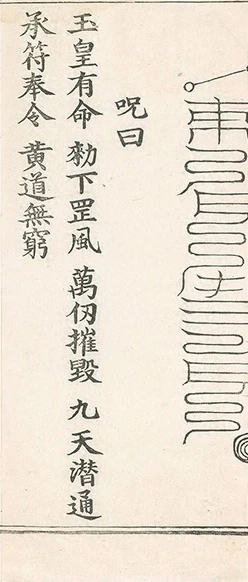 呪曰
玉皇有命 勑下罡風 萬仞摧毀 九天潛通
承符奉令 黃道無窮